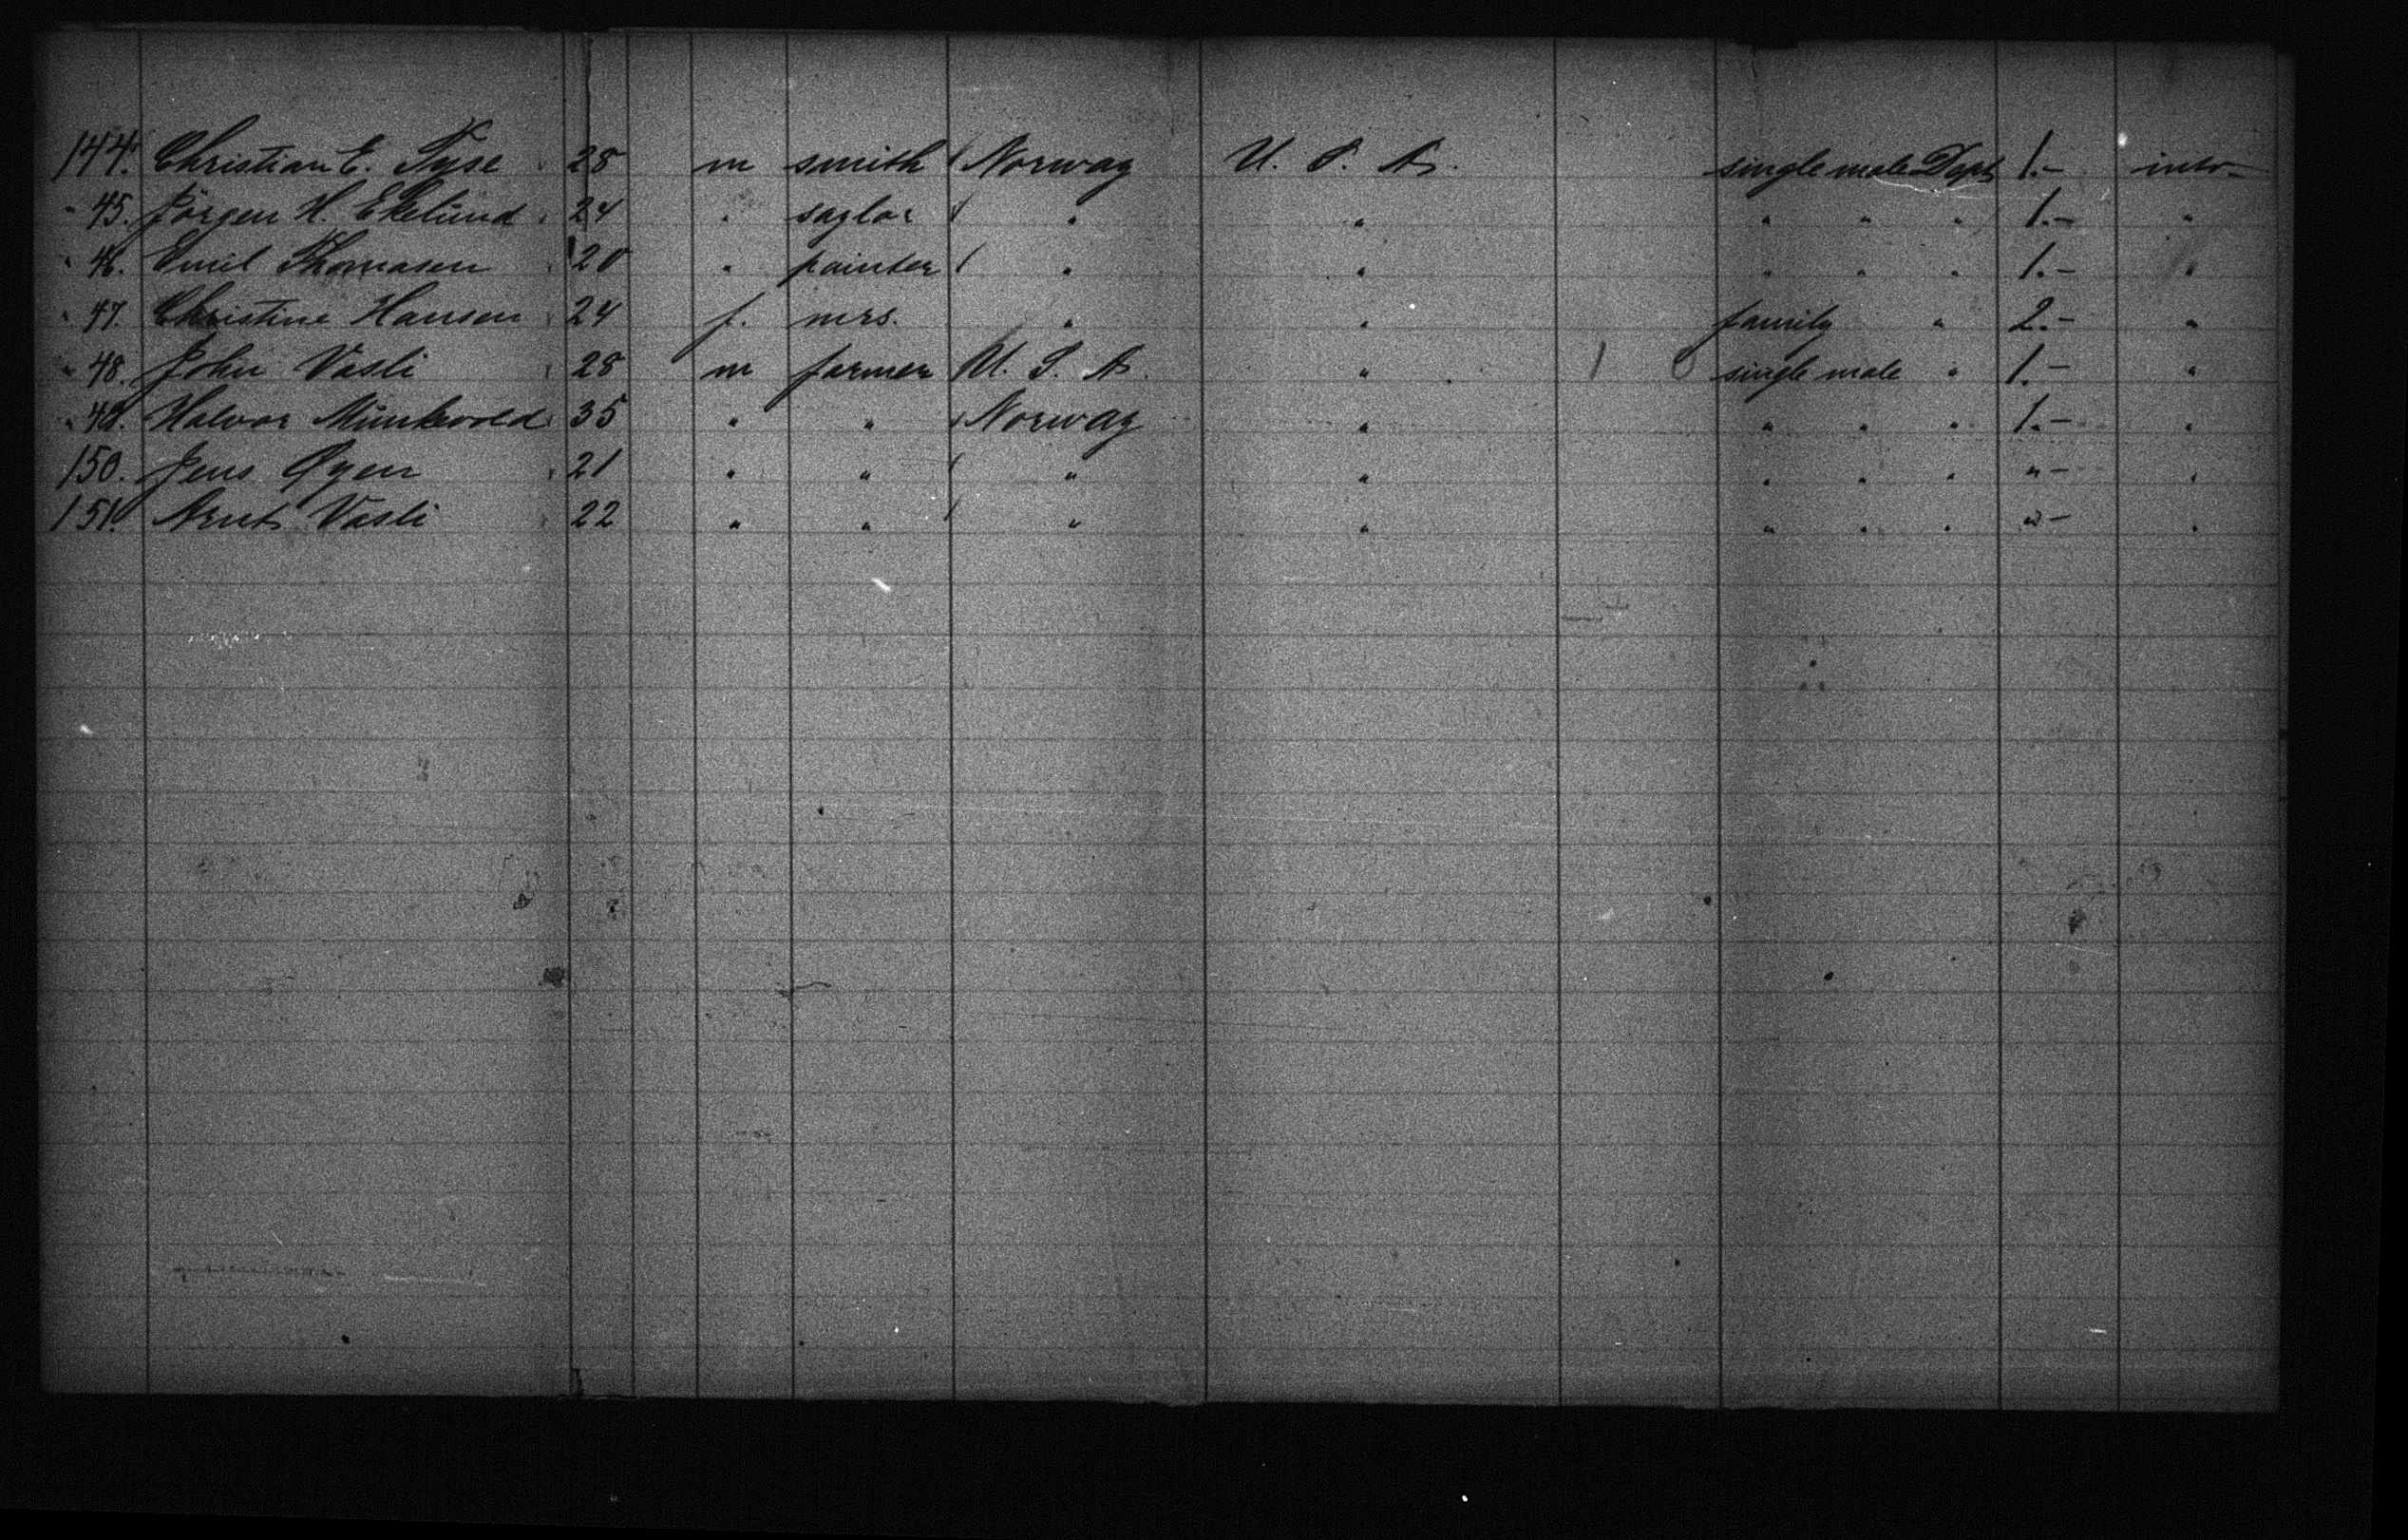 144. Christian E. Tyse 28 m smith Norway U. S. A. single male Dept 1.- into-
" 45. Jörgen H. Ekelund 24 " saylor " " " " " 1.- "
" 46. Emil Thomasen 20 " painter " " " " " 1.- "
" 47. Christine Hansen 24 f. mrs. " " family " 2.- "
" 48. John Vasli 28 m farmer U. S. A. " 1 single male " 1.- "
" 49. Halvor Munkvold 35 " " Norway " " " " 1.- "
150. Jens Øyen 21 " " " " " " " " - "
151. Arnt Vasli 22 " " " " " " " " - "